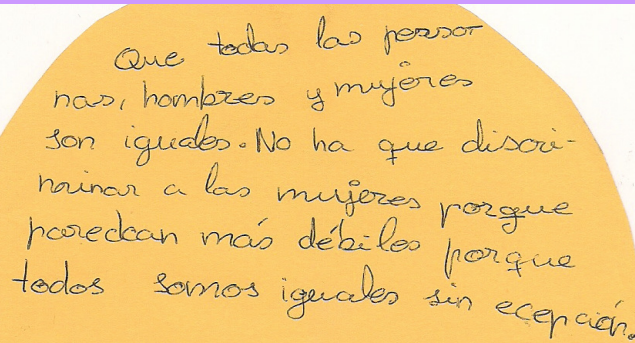 Que todas las perso-
nas, hombres y mujeres
son iguales. No ha que discri-
minar a las mujeres porque
paredcan más débiles porque
todos somos iguales sin ecepción.